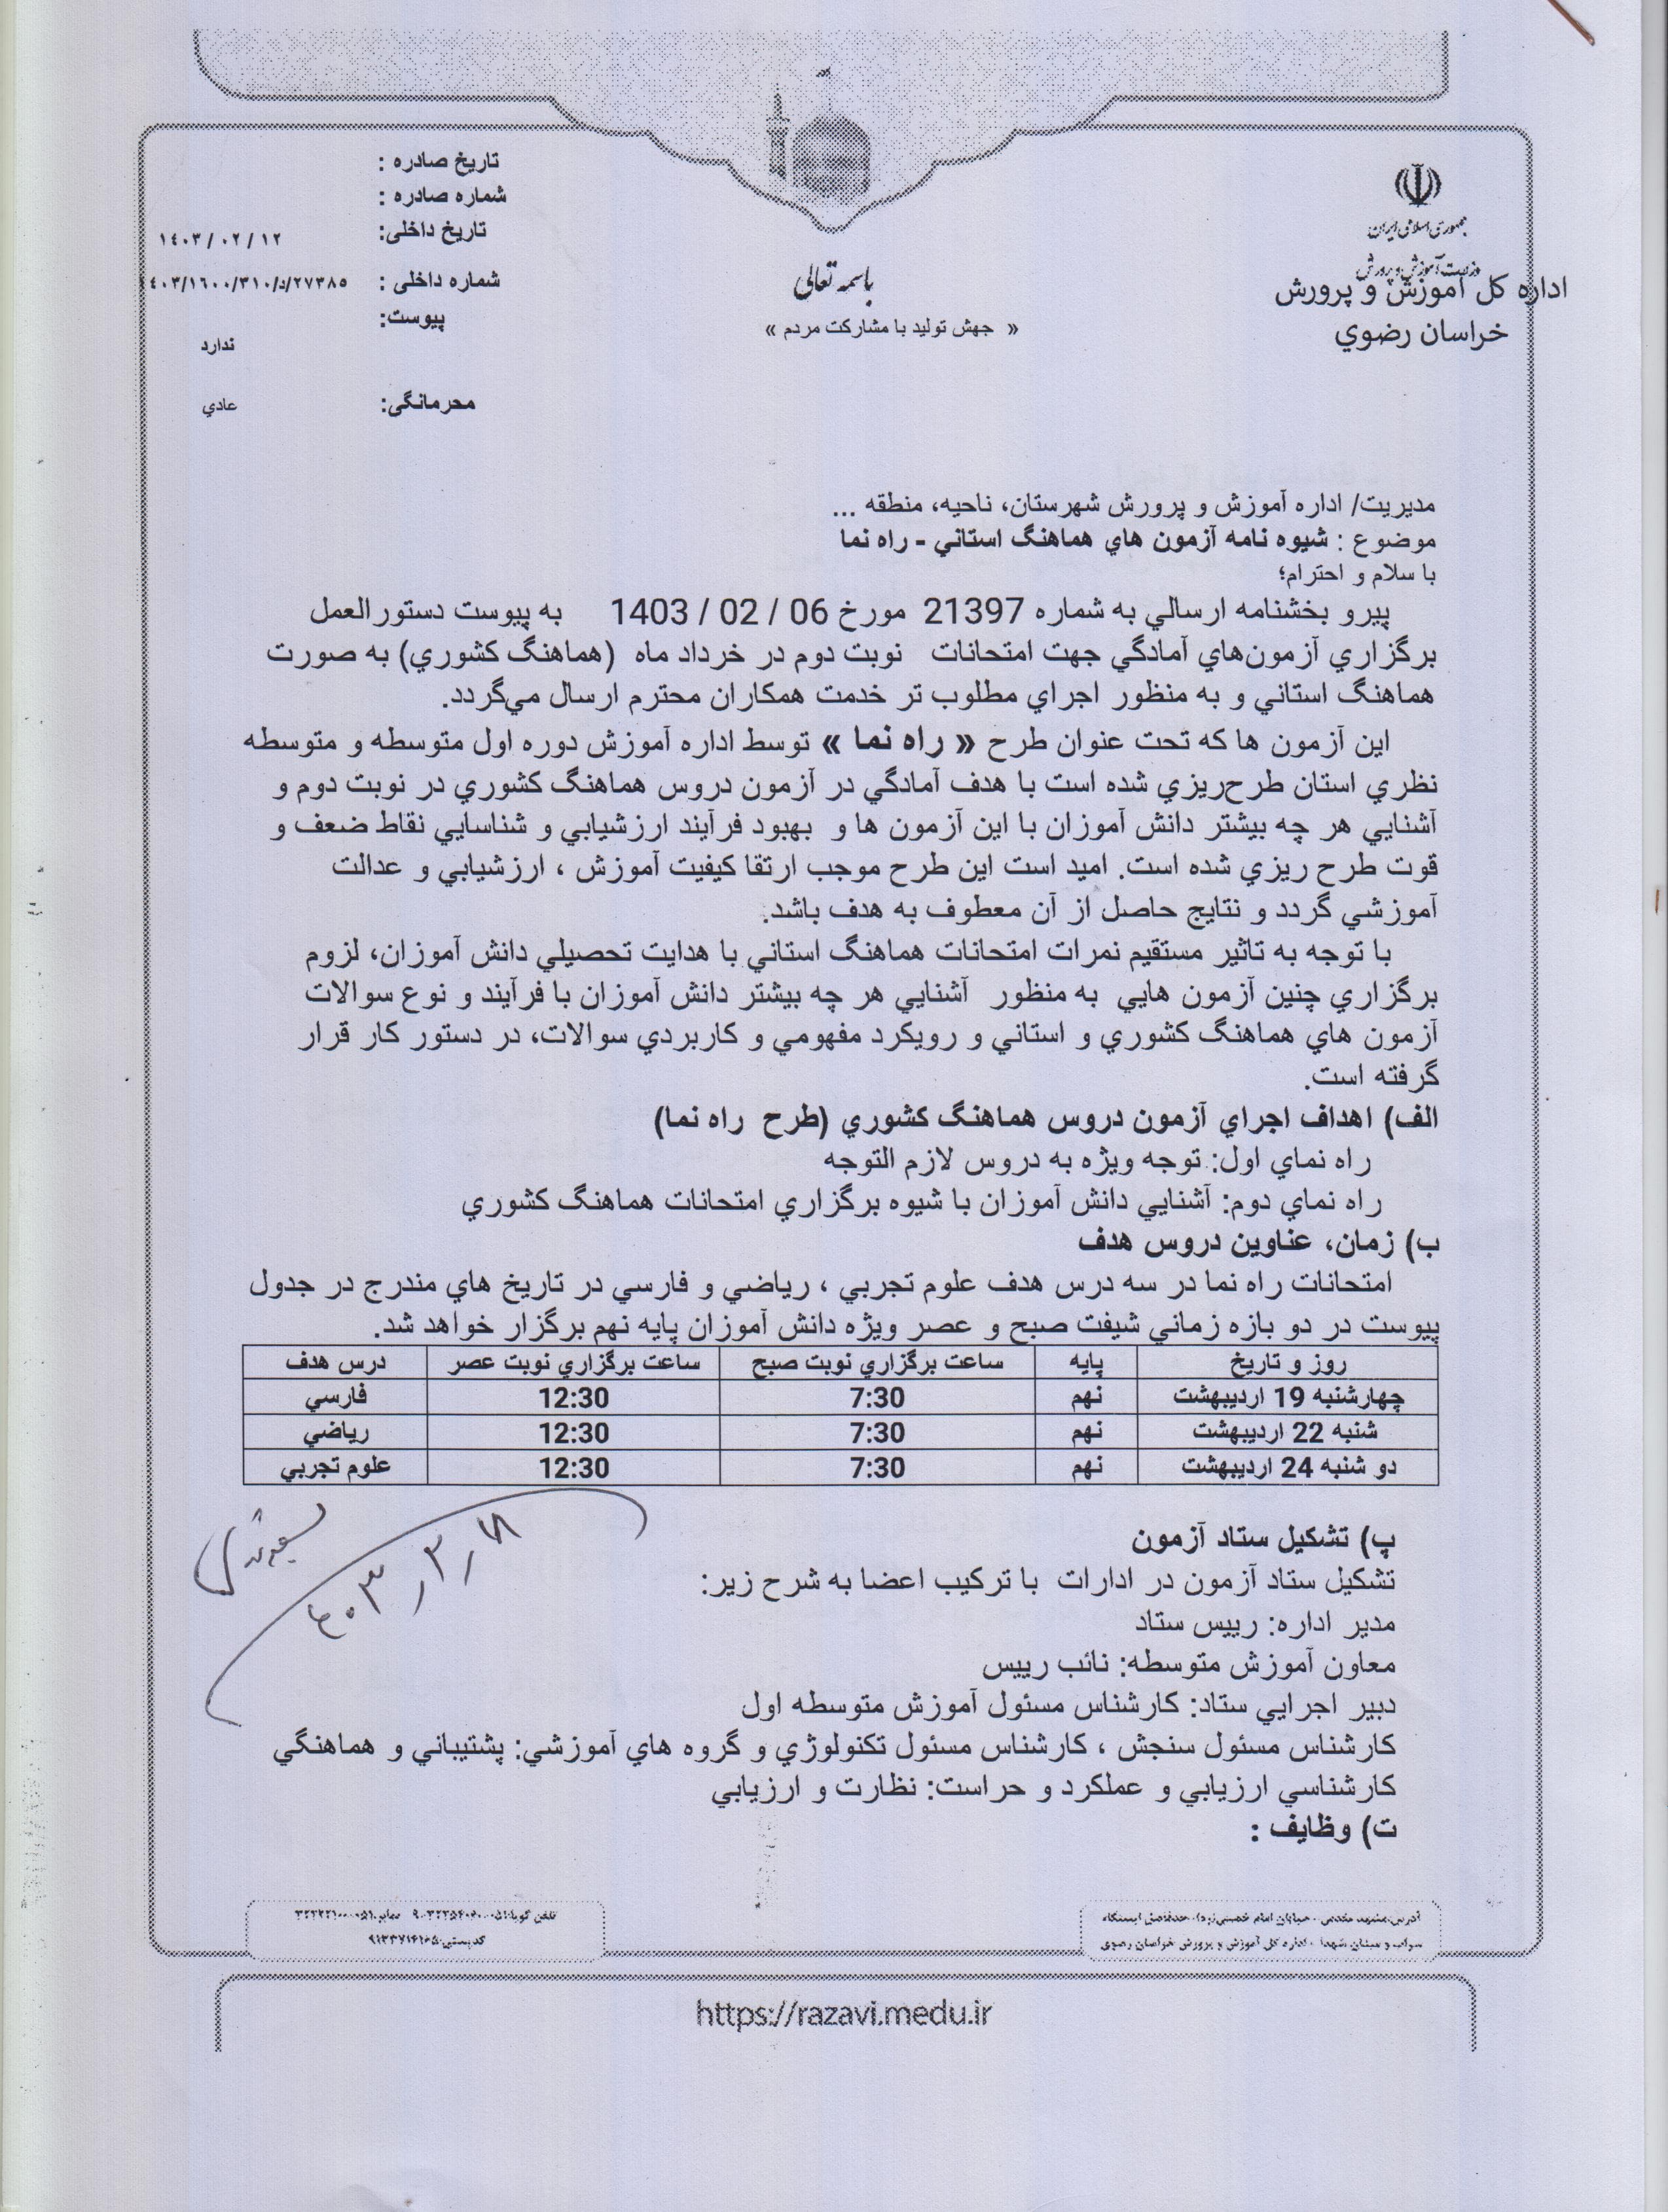 جمهوری اسلامی ایران
وزارت آموزش و پرورش
اداره کل آموزش و پرورش
خراسان رضوي
باسمه تعالی
« جهش تولید با مشارکت مردم »
تاریخ صادره :
شماره صادره :
تاریخ داخلی: ١٤٠٣/٠٢/١٢
شماره داخلی : ٤٠٣/١٦٠٠/٣١٠/د/٢٧٣٨٥
پیوست:
ندارد
محرمانگی: عادي
مدیریت/ اداره آموزش و پرورش شهرستان، ناحیه، منطقه ...
موضوع : شیوه نامه آزمون هاي هماهنگ استاني - راه نما
با سلام و احترام؛
پیرو بخشنامه ارسالي به شماره 21397 مورخ 06 / 02 / 1403 به پیوست دستورالعمل
برگزاري آزمون‌هاي آمادگي جهت امتحانات نوبت دوم در خرداد ماه (هماهنگ کشوري) به صورت
هماهنگ استاني و به منظور اجراي مطلوب تر خدمت همکاران محترم ارسال مي‌گردد.
این آزمون ها که تحت عنوان طرح « راه نما » توسط اداره آموزش دوره اول متوسطه و متوسطه
نظري استان طرح‌ریزي شده است با هدف آمادگي در آزمون دروس هماهنگ کشوري در نوبت دوم و
آشنایي هر چه بیشتر دانش آموزان با این آزمون ها و بهبود فرآیند ارزشیابي و شناسایي نقاط ضعف و
قوت طرح ریزي شده است. امید است این طرح موجب ارتقا کیفیت آموزش ، ارزشیابي و عدالت
آموزشي گردد و نتایج حاصل از آن معطوف به هدف باشد.
با توجه به تاثیر مستقیم نمرات امتحانات هماهنگ استاني با هدایت تحصیلي دانش آموزان، لزوم
برگزاري چنین آزمون هایي به منظور آشنایي هر چه بیشتر دانش آموزان با فرآیند و نوع سوالات
آزمون هاي هماهنگ کشوري و استاني و رویکرد مفهومي و کاربردي سوالات، در دستور کار قرار
گرفته است.
الف) اهداف اجراي آزمون دروس هماهنگ کشوري (طرح راه نما)
راه نماي اول: توجه ویژه به دروس لازم التوجه
راه نماي دوم: آشنایي دانش آموزان با شیوه برگزاري امتحانات هماهنگ کشوري
ب) زمان، عناوین دروس هدف
امتحانات راه نما در سه درس هدف علوم تجربي ، ریاضي و فارسي در تاریخ هاي مندرج در جدول
پیوست در دو بازه زماني شیفت صبح و عصر ویژه دانش آموزان پایه نهم برگزار خواهد شد.
روز و تاریخ پایه ساعت برگزاري نوبت صبح ساعت برگزاري نوبت عصر درس هدف
چهارشنبه 19 اردیبهشت نهم 7:30 12:30 فارسي
شنبه 22 اردیبهشت نهم 7:30 12:30 ریاضي
دو شنبه 24 اردیبهشت نهم 7:30 12:30 علوم تجربي
پ) تشکیل ستاد آزمون
تشکیل ستاد آزمون در ادارات با ترکیب اعضا به شرح زیر:
مدیر اداره: رییس ستاد
معاون آموزش متوسطه: نائب رییس
دبیر اجرایي ستاد: کارشناس مسئول آموزش متوسطه اول
کارشناس مسئول سنجش ، کارشناس مسئول تکنولوژي و گروه هاي آموزشي: پشتیباني و هماهنگي
کارشناسي ارزیابي و عملکرد و حراست: نظارت و ارزیابي
ت) وظایف :
آدرس:مشهد مقدس - خیابان امام خمینی(ره)- حدفاصل ایستگاه
سراب و میدان شهدا - اداره کل آموزش و پرورش خراسان رضوی
https://razavi.medu.ir